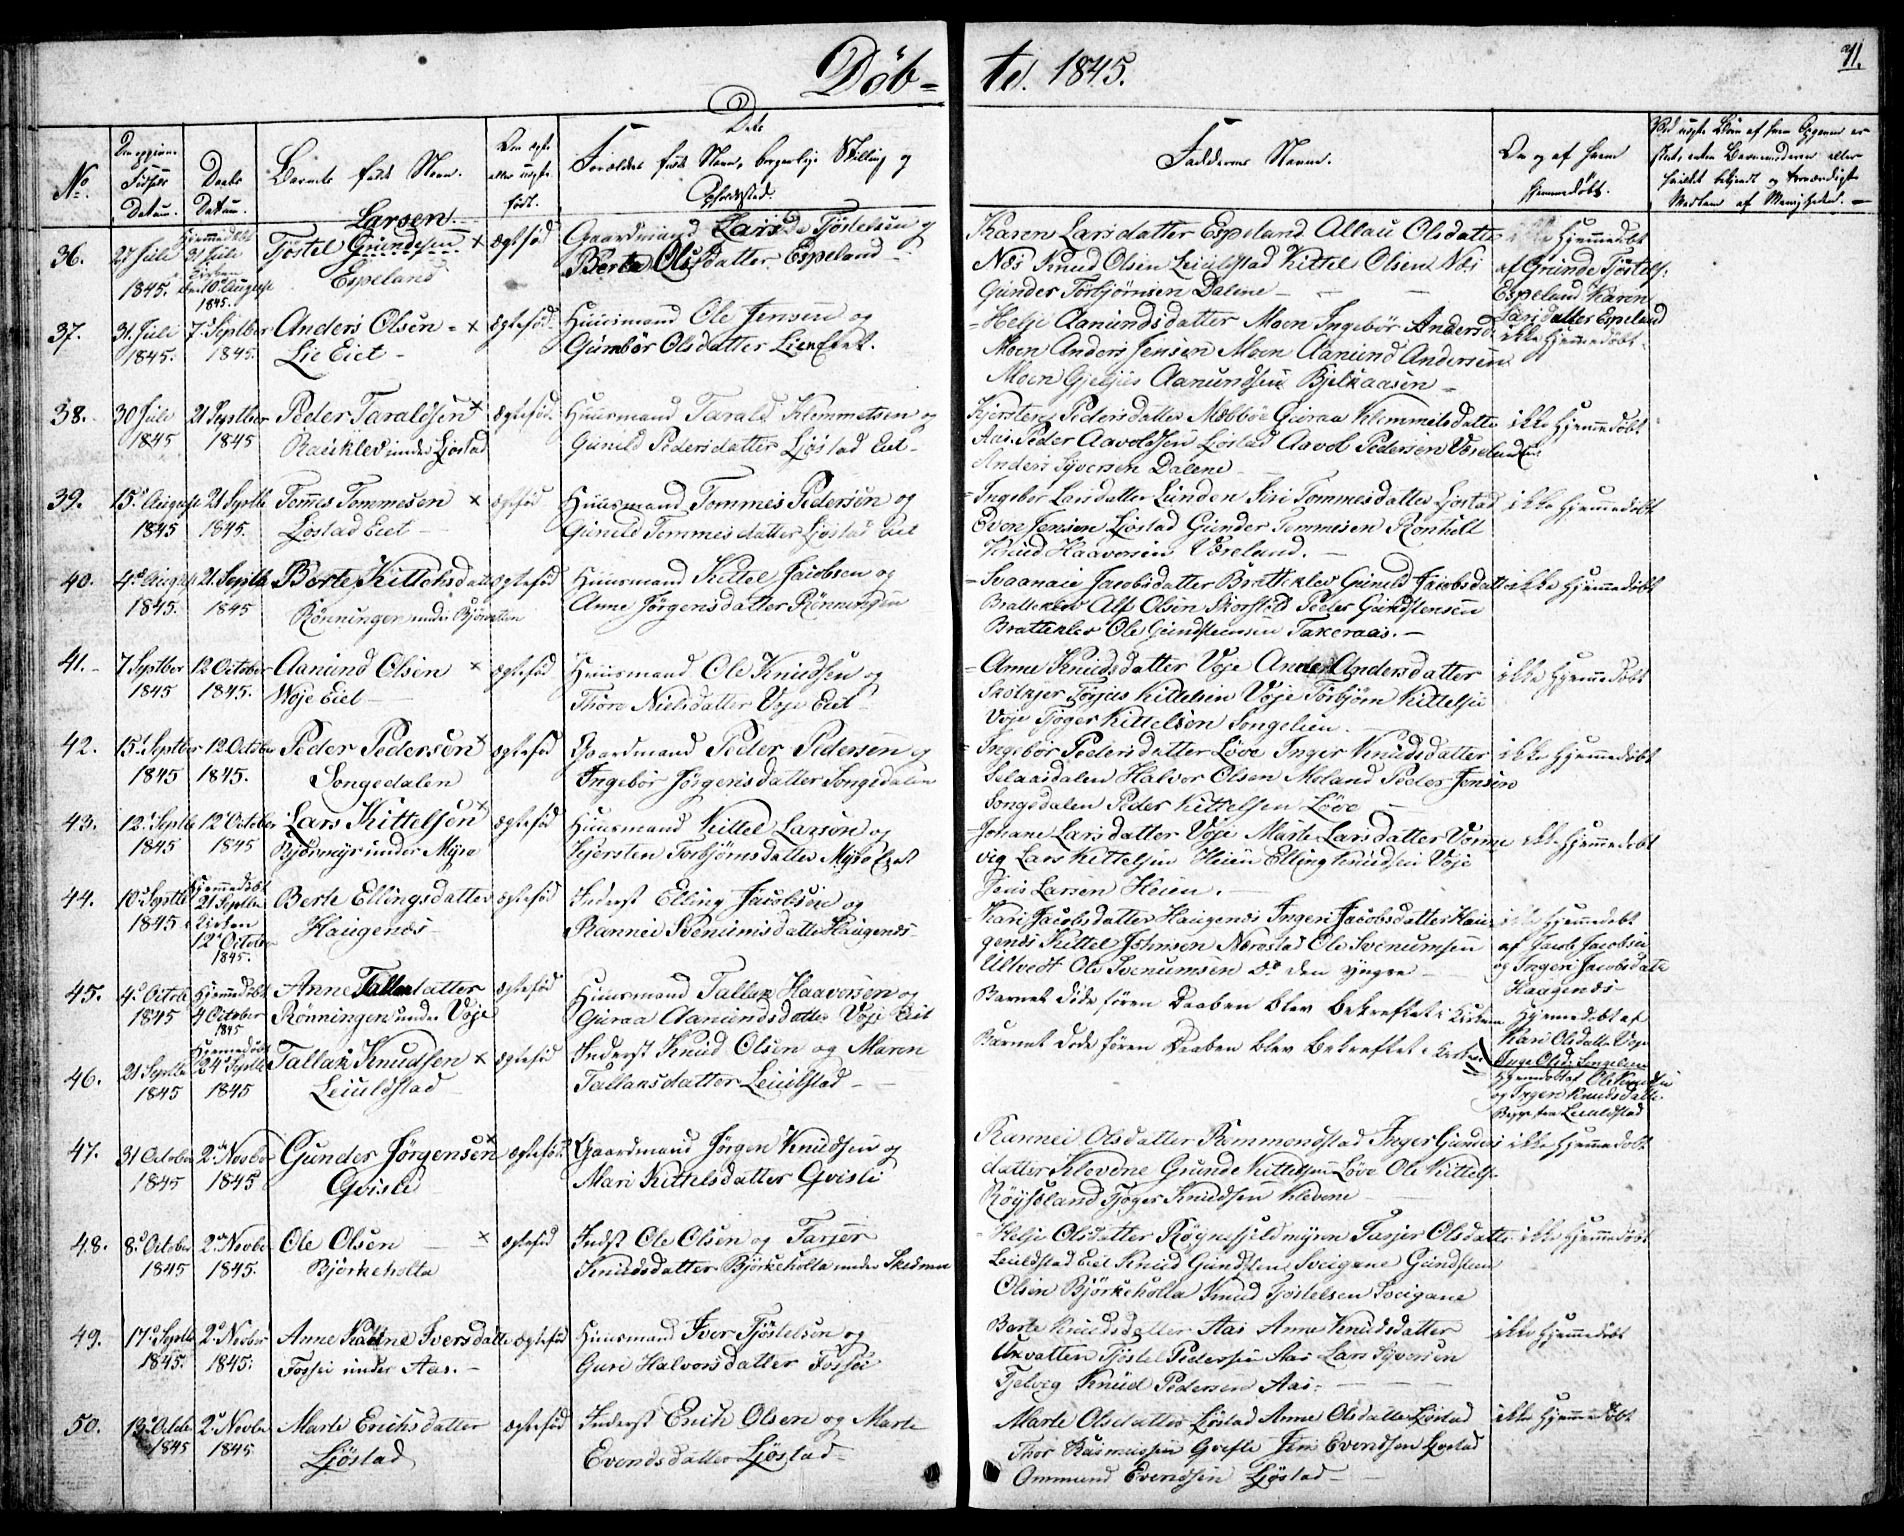 Døb-
te. 1845.
71.
No
Den opgivne Fødsels Datum.
Daabs Datum.
Barnets fulde Navn.
Om ægte eller uægte født.
Dets
Forældres fulde Navn, borgerlige Stilling og
Opholdssted.
Faddernes Navne.
Om og af hvem hjemmedøbt.
36.
27 Juli
1845.
Hjemmedøbt
27 Juli
Kirken
den 10de August
1845.
Larsen
Tjøstel Grundesen ×
Espeland
ægtefød
Gaardmand Lars Tjøstelsen og
Berte Olsdatter Espeland
Karen Larsdatter Espeland Olsdatter
Næs Knud Olsen Leiulstad Kittel Olsen Næs
Gunder Torbjørnsen Dalene
Hjemmedøbt
af Grunde Tjøstels.
Espeland Karen
Larsdatter Espeland
37.
31. Juli
1845.
7 Septber
1845.
Anders Olsen ×
Lie Eiet
ægtefød
Huusmand Ole Jensen og
Gumbor Olsdatter Lien Eiet.
Helje Aanundsdatter Moen Ingebor Andersd.
Moen Anders Jensen Moen Aanund Andersen
Moen Gjeljus Aanundsen Bjelkaasen
ikke Hjemmedøbt
38.
30 Juli
1845
21 Septber
1845
Peder Taraldsen ×
Rauklev under Ljøstad
ægtefød
Huusmand Tarald Klemmetsen og
Gunild Pedersdatter Ljøstad Eiet
Kjersten Pedersdatter Mæbbøe Guraa Klemmetsdatter
Aas. Peder Aavoldsen Ljøstad Aavol Pedersen Væreland
Anders Syversen Dalene
ikke Hjemmedøbt
39.
15. August
1845
21 Septb
1845.
Tommes Tommesen ×
Ljøstad Eiet
ægtefød
Huusmand Tommes Pedersen og
Gunild Tommesdatter Ljøstad Eiet
Ingebor Larsdatter Lunden Siri Tommesdatter Ljøstad
Even Jensen Ljøstad Gunder Tommesen Ronhilt
Knud Haaversen Væreland.
ikke Hjemmedøbt
40.
4. August
1845.
21. Septb
1845
Berte Kittelsdatter
Rønningen under Bjørntien
ægtefød
Huusmand Kittel Jacobsen og
Anne Jørgensdatter Rønningen
Svaanaui Jacobsdatter Bratteklev Gunild Jacobsdatter
Bratteklev Alf Olsen Skorstøl Peder Gundstensen
Bratteklev Ole Gundstensen Takeraas.
ikke Hjemmedøbt
41.
7 Septber
1845
12 October
1845.
Aanund Olsen ×
Woje Eiet
ægtefød
Huusmand Ole Knudsen og
Thore Nielsdatter Voje Eiet
Anne Knudsdatter Voje Anne Andersdatter
Skolkjer Tosjus Kittelsen Voje Torbjørn Kittelsen
Voje Tjøger Kittelsen Songelien.
ikke Hjemmedøbt
42.
15. Septber
1845
12 October
1845.
Peder Pedersen ×
Songedalen
ægtefød
Gaardmand Peder Pedersen og
Ingebor Jørgensdatter Songedalen
Ingebor Pedersdatter Løve Inger Knudsdatter
Selaasdalen Halvor Olsen Moland Peder Jensen
Songedalen Peder Kittelsen Løve
ikke Hjemmedøbt
43.
12. Septb
1845
12 October
1845
Lars Kittelsen ×
Rydsmyr under Myre
ægtefød
Huusmand Kittel Larsen og
Kjersten Torbjørnsdatter Myre Eiet
Johane Larsdatter Voje Marte Larsdatter Vorme
vig Lars Kittelsen Heien Elling Knudsen Voje
Jens Larsen Heien.
ikke Hjemmedøbt
44.
10. Septb
1845
Hjemmedøbt
21 Septbr
Kirken
12 October
1845.
Berte Ellingsdatter
Haugenes
ægtefød
Inderst Elling Jacobsen og
Rannei Svenumsdatter Haugenes
Kari Jacobsdatter Haugenes Ingeri Jacobsdatter Hau-
genes Kittel Johnsen Nærestad Ole Svenumsen
Ultvedt Ole Svenumsen do den yngre
Hjemmedøbt
af Jacob Jacobsen
og Ingeri Jacobsdatter
Haugenes
45.
4. Octob
1845
Hjemmedøbt
4 October
1845
Anne Tallaksdatter
Rønningen under Voje
ægtefød
Huusmand Tallak Haaversen og
Guraa Aanundsdatter Voje Eiet
Barnet døde føren Daaben blev bekreftet i Kirken
Hjemmedøbt af
Kari Olsdatter Voje
Inge Olsd. Songelien
46.
21 Septb
1845
Hjemmedøbt
24 Septb
1845
Tallak Knudsen ×
Leiulstad
ægtefød
Inderst Knud Olsen og Maren
Tallaksdatter Leiulstad
Barnet døde føren Daaben blev bekreftet i Kirken
Hjemmedøbt af Ole Knudsen
og Ingeri Knudsdatter
Begge fra Leiulstad
47.
31 October
1845
2. Novbr
1845
Gunder Jørgensen ×
Qvisle
ægtefød
Gaardmand Jørgen Knudsen og
Mari Kittelsdatter Qvisle
Rannei Olsdatter Rommondstad Inger Gunders
datter Klevene Grunde Kittelsen Løve Ole Kittels.
Røysland Tjøger Knudsen Klevene
ikke Hjemmedøbt
48.
8. October
1845
2. Novbr
1845.
Ole Olsen ×
Bjørkeholta
ægtefød
Indst Ole Olsen og Tarjer
Knudsdatter Bjørkeholta under Skedmoe
Helje Olsdatter Røgnesfjeldmyren Tarjer Olsdatter
Leiulstad Eiet Knud Gundsten Sveigane Gundsten
Olsen Bjørkeholta Knud Tjøstelsen Sveigane
ikke Hjemmedøbt
49.
17. Septb
1845.
2. Novbr
1845.
Anne Katrine Iversdatter
Fossei under Aas.
ægtefød
Huusmand Iver Tjøstelsen og
Guri Halvorsdatter Fossei
Berte Knudsdatter Aas Anne Knudsdatter
Uxvatten Tjøstel Pedersen Aas Lars Syversen
Fjelvig Knud Pedersen Aas.
ikke Hjemmedøbt
50.
13. Octbr
1845
2. Novbr
1845
Marte Erichsdatter
Ljøstad
ægtefød
Inderst Erich Olsen og Marte
Evendsdatter Ljøstad
Marte Olsdatter Ljøstad Anne Olsdatter Ljøstad
Thor Rasmussen Qvifte Jens Evendsen Ljøstad
Ommund Evendsen Ljøstad
ikke Hjemmedøbt